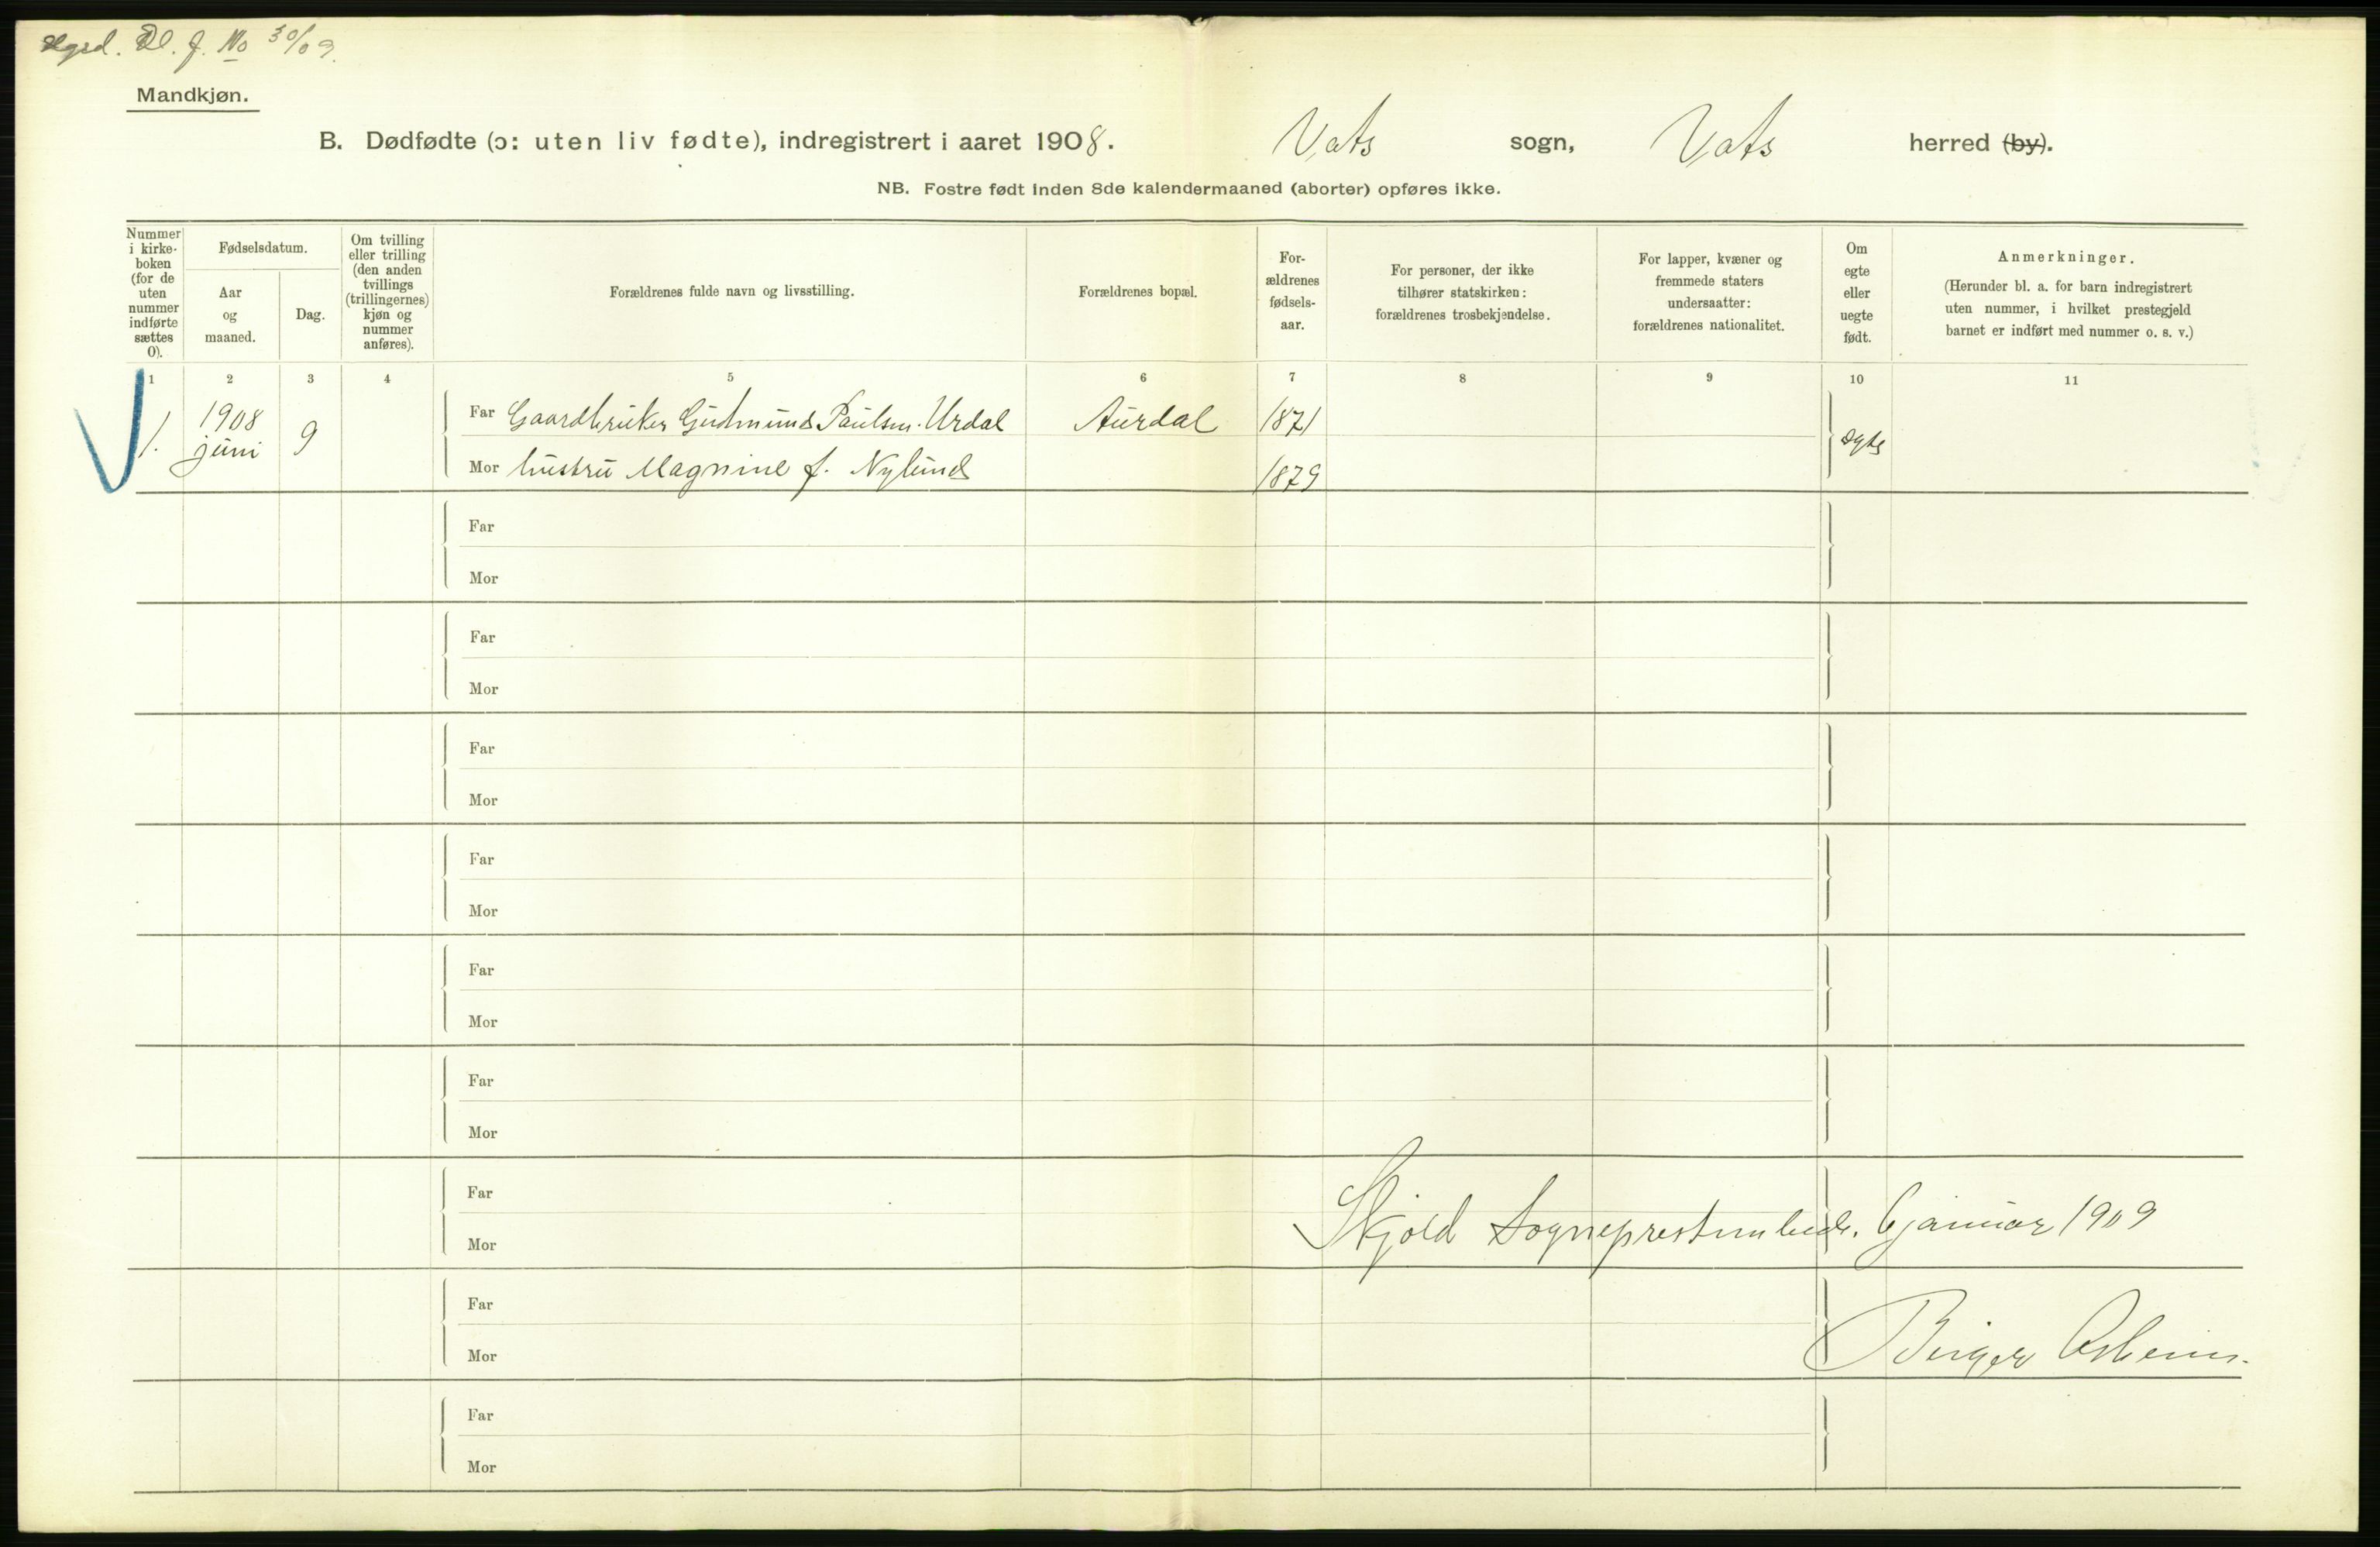 Dl. J. No 30/09.
Mandkjøn.
B. Dødfødte (ɔ: uten liv fødte), indregistrert i aaret 1908. Vats sogn, Vats herred (by).
NB. Fostre født inden 8de kalendermaaned (aborter) opføres ikke.
Nummer i kirke-boken (for de uten nummer indførte sættes 0).
Fødselsdatum.
Aar og maaned.
Dag.
Om tvilling eller trilling (den anden tvillings (trillingernes) kjøn og nummer anføres).
Forældrenes fulde navn og livsstilling.
Forældrenes bopæl.
For-ældrenes fødsels-aar.
For personer, der ikke tilhører statskirken: forældrenes trosbekjendelse.
For lapper, kvæner og fremmede staters undersaatter: forældrenes nationalitet.
Om egte eller uegte født.
Anmerkninger.
(Herunder bl. a. for barn indregistrert uten nummer, i hvilket prestegjeld barnet er indført med nummer o. s. v.)
1 2 3 4 5 6 7 8 9 10 11
1. 1908 juni 9 Far Gaardbruker Gudmund Paulsen Urdal Aurdal 1871 egte
Mor hustru Magnine f. Nylund 1879
Far
Mor
Far
Mor
Far
Mor
Far
Mor
Far
Mor
Far
Mor
Far
Skjold Sogneprestembede. 6 januar 1909
Mor
Far
Mor Birger
Far
Mor